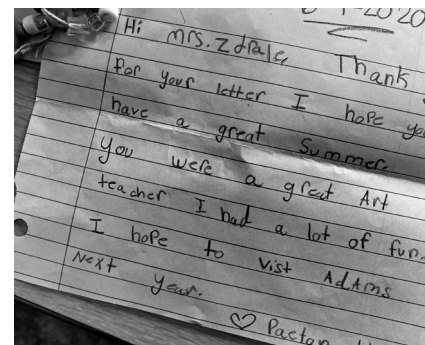 2020
Hi Mrs. Zdrale, Thank
for your letter I hope you
have a great Summer.
You were a great Art
teacher I had a lot of fun.
I hope to vist Adams
Next year.
♡ Paeton